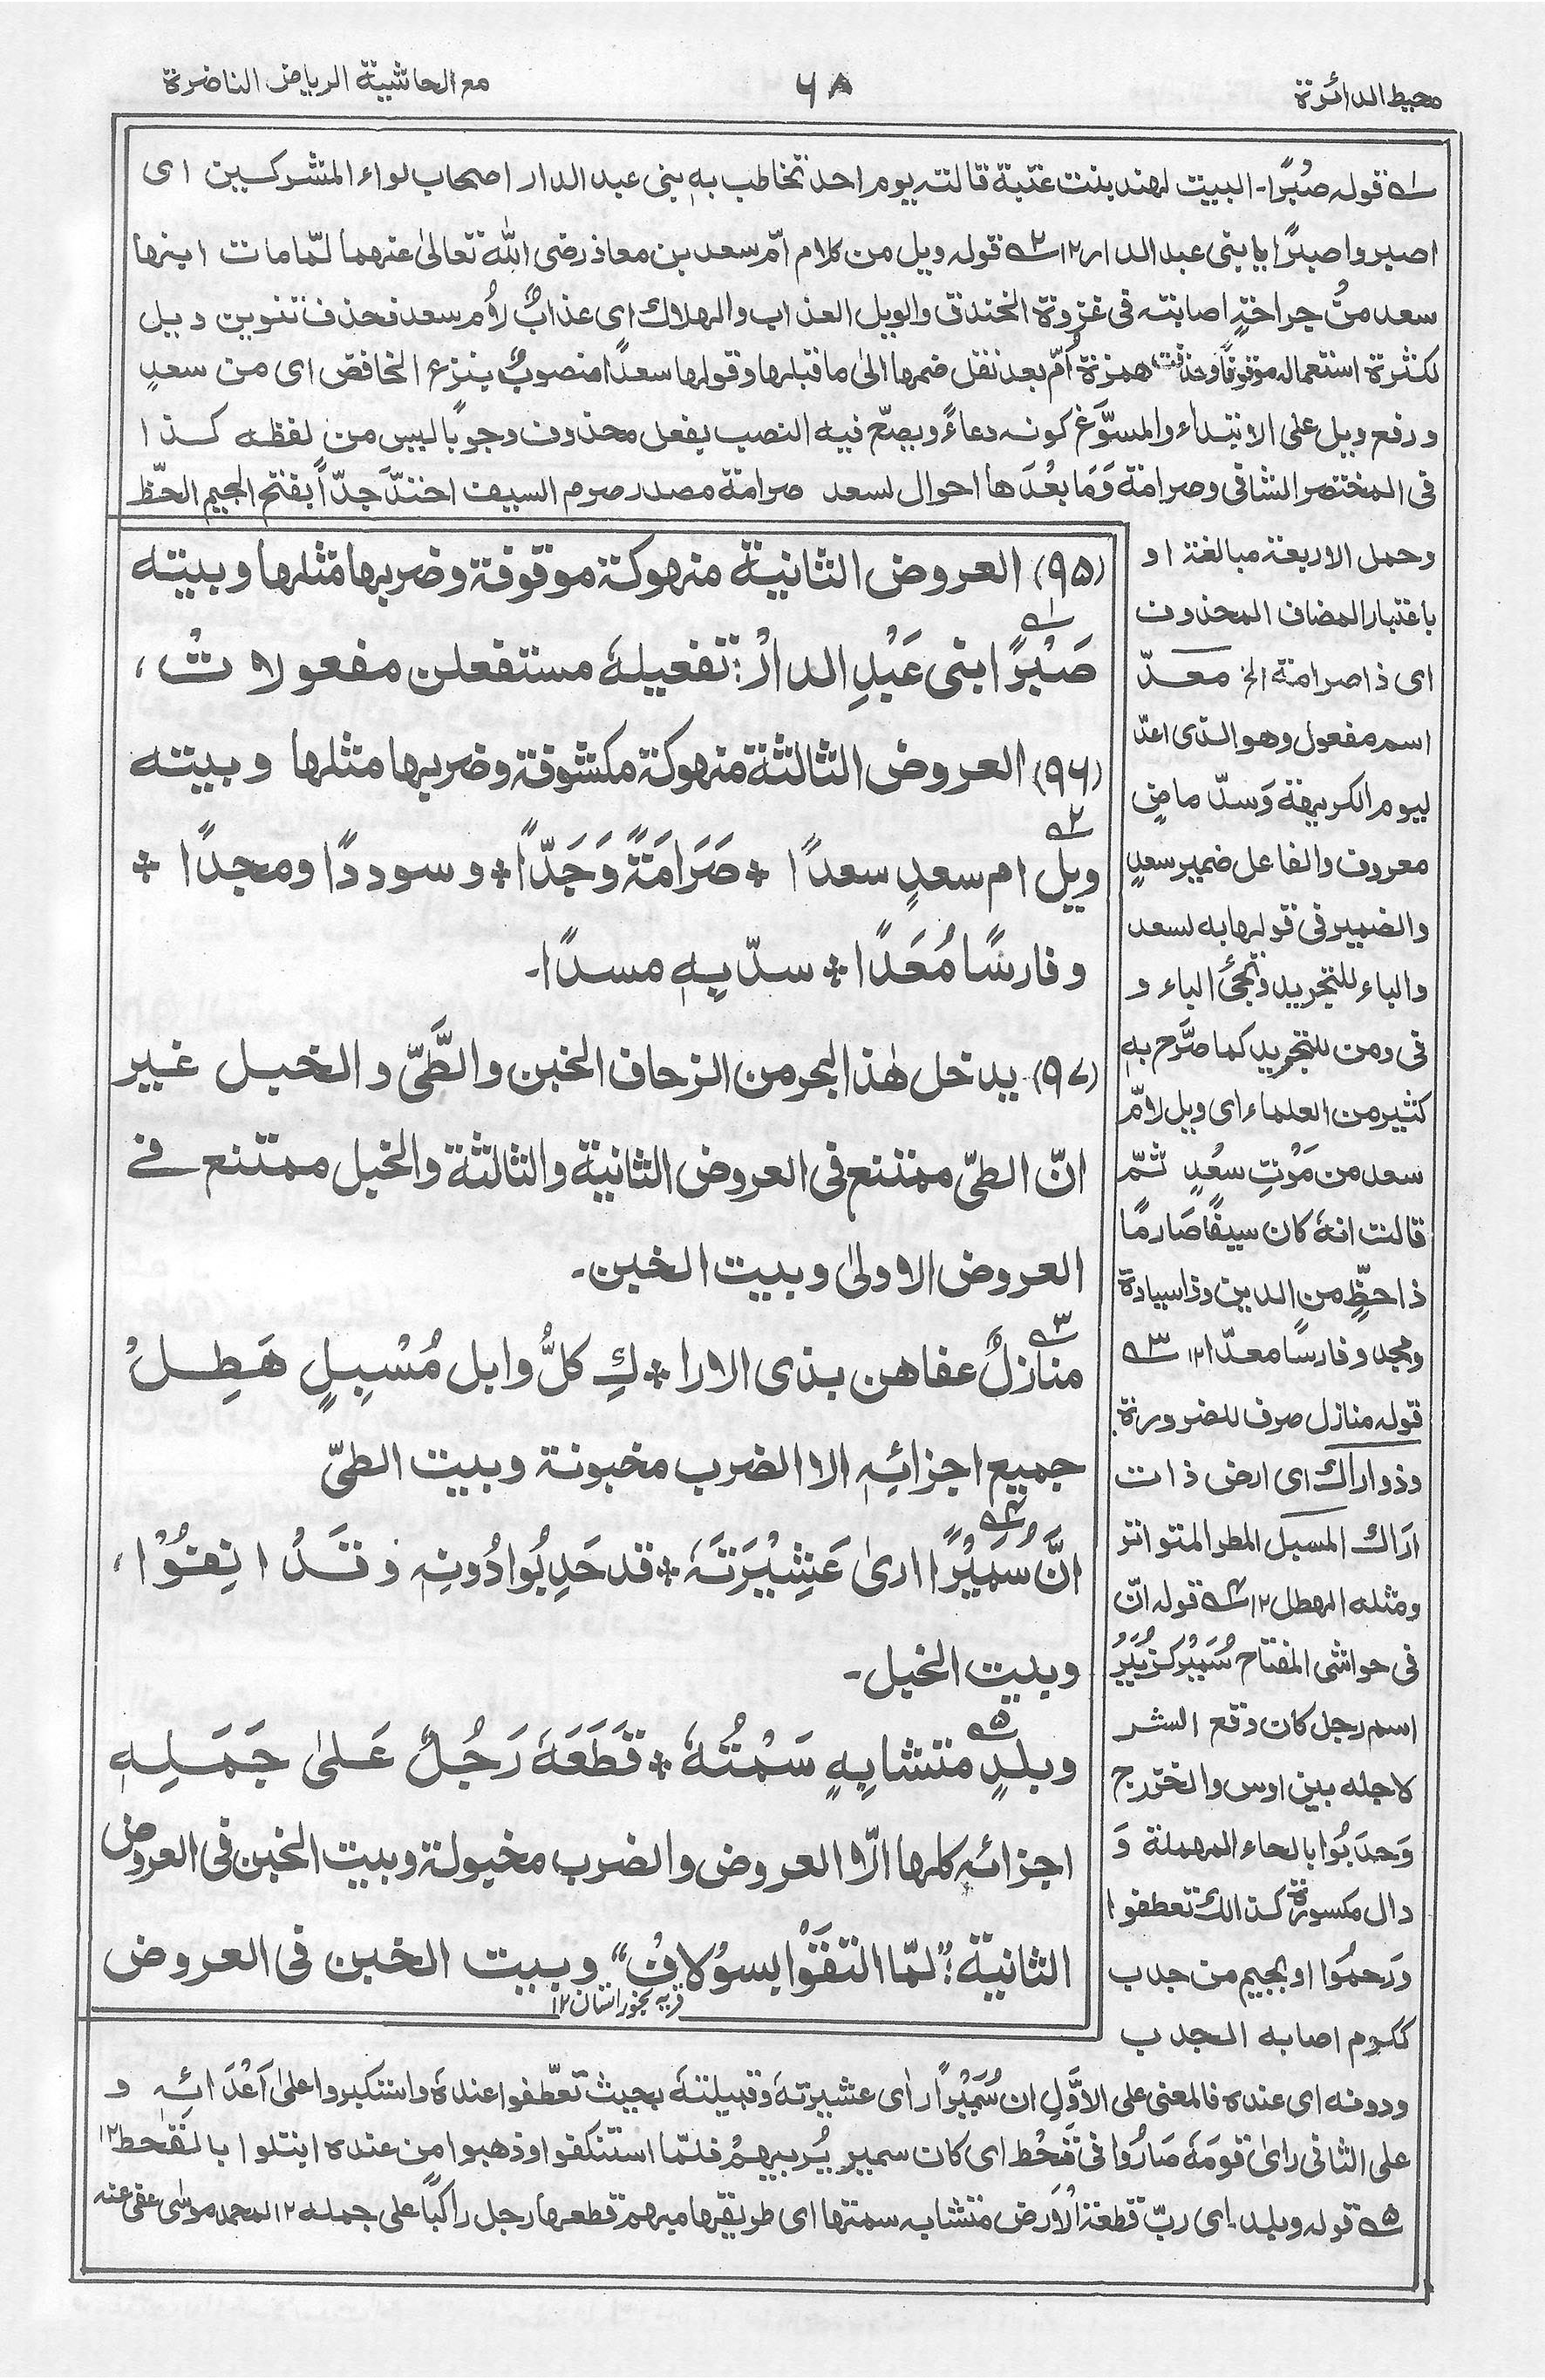 محيط الدائرة
٦٨
مع الحاشية الرياض الناضرة
١ قوله صُبْرًا۔ البيت لهند بنت عتبة قالته يوم احد تخاطب به بنى عبد الدار اصحاب لواء المشركين اى
اصبروا صبرًا يا بنى عبد الدار ١٢ ٢ قوله ويل من كلام امّ سعد بن معاذ رضى الله تعالىٰ عنهما لمّا مات ابنها
سعد منْ جراحةٍ اصابته فى غزوة الخندق والويل العذاب والهلاك اى عذابٌ لأم سعد فحذف تنوين ويل
لكثرة استعماله موقوفًا وحذفت همزة أمّ بعد نقل ضمها الىٰ ما قبلها وقولها سعدًا منصوبٌ بنزع الخافض اى من سعدٍ
ورفع ويل على الابتداء والمسوّغ كونه دعاءً ويصحّ فيه النصب بفعل محذوف وجوبًا ليس من لفظه كذا
فى المختصر الشافى وصرامة وَمَا بعْدَها احوال لسعد صرامة مصدر صرم السيف احتدّ جدّاً بفتح الجيم الحظ
وحمل الاربعة مبالغة او
باعتبار المضاف المحذوف
اى ذا صرامة الخ معدّ
اسم مفعول وهو الذى اعدّ
ليوم الكريهة وَسدّ ماضٍ
معروف والفاعل ضمير سعدٍ
والضمير فى قولها به لسعد
والباء للتجريد وتجئ الباء و
فى ومن للتجريد كما صرَّح به
كثير من العلماء اى ويل لامّ
سعد من مَوْتِ سعْدٍ ثمّ
قالت انهٗ كان سيفًا صَارمًا
ذا حظٍّ من الدين وذا سيادة
ومجد وفارسًا معدّا ١٢ ٣
قوله منازل صرف للضرورة
وذو اراك اى ارض ذات
ارَاك المسبل المطر المتواتر
ومثله الهطل ١٢ ٤ قوله انّ
فى حواشى المفتاح سُمَيْر كزُبَيْرُ
اسم رجل كان وقع الشر
لاجله بين اوس والخزرج
وَحدَبُوا بالحاء المهملة وَ
دال مكسورة كذالك تعطفوا
ورَحمُوا او بجيم من جدب
ككرم اصابه الجدب
(٩٥) العروض الثانية منهوكة موقوفة وضربها مثلها وبيته
١ صَبْرًا بنى عَبْدِ الدارْ: تفعيلهٗ مستفعلن مفعولاتْ،
(٩٦) العروض الثالثة منهوكة مكشوفة وضربها مثلها وبيته
٢ ويل ام سعدٍ سعدًا * صَرَامَةً وَجَدّاً * وسوددًا ومجدًا *
وفارسًا مُعَدًا * سدّ بِهِ مسدًا۔
(٩٧) يدخل هٰذا البحر من الزحاف الخبن والطَّىّ والخبل غير
انّ الطىّ ممتنع فى العروض الثانية والثالثة والخبل ممتنع فے
العروض الاولىٰ وبيت الخبن۔
٣ منازلٌ عفاهن بذى الارا * كِ كلُّ وابل مُسْبِلٍ هَطِلْ
جميع اجزائهٖ الا الضرب مخبونة وبيت الطىّ
٤ انَّ سُمَيْرًا ارىٰ عَشِيْرَتَهٗ * قد حَدِبُوا دُونهٖ وَقَدْ اَنِفُوْا،
وبيت الخبل۔
٥ وبلدٍ متشابِهٍ سَمْتُهٗ * قَطَعَهٗ رَجُلٌ عَلىٰ جَمَلِهٖ
اجزائه كلها الّا العروض والضرب مخبولة وبيت الخبن فى العروض
الثانية: "لمّا التقَوْا بسوْلافْ" وبيت الخبن فى العروض
قريه بخوزستان ١٢
ودونه اى عنده فالمعنى على الاوَّلِ ان سُمَيْرًا رأى عشيرتهٗ وقبيلتهٗ بحيث تعّطفوا عندهٗ واستكبروا علىٰ اَعْدَائهٖ و
على الثانى راىٰ قومَهٗ صَارُوا فى قحْط اى كان سمير يُربيهمْ فلمّا استنكفوا وذهبوا من عنده ابتلوا بالقحط ١٢
٥ قوله وبلد۔ اى ربّ قطعة الْاَرض متشابه سمتها اى طريقها مبهم قطعها رجل راكبًا على جمله ١٢ لمحمد موسىٰ عفى عنه